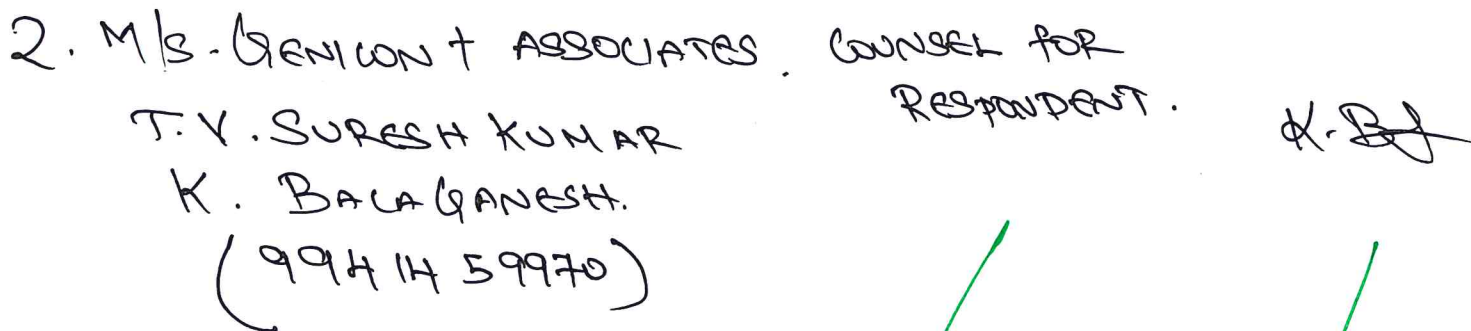 2. M/s. GENICON + ASSOCIATES. COUNSEL FOR
RESPONDENT.
T.V. SURESH KUMAR
K. BALAGANESH.
(99414 59970)